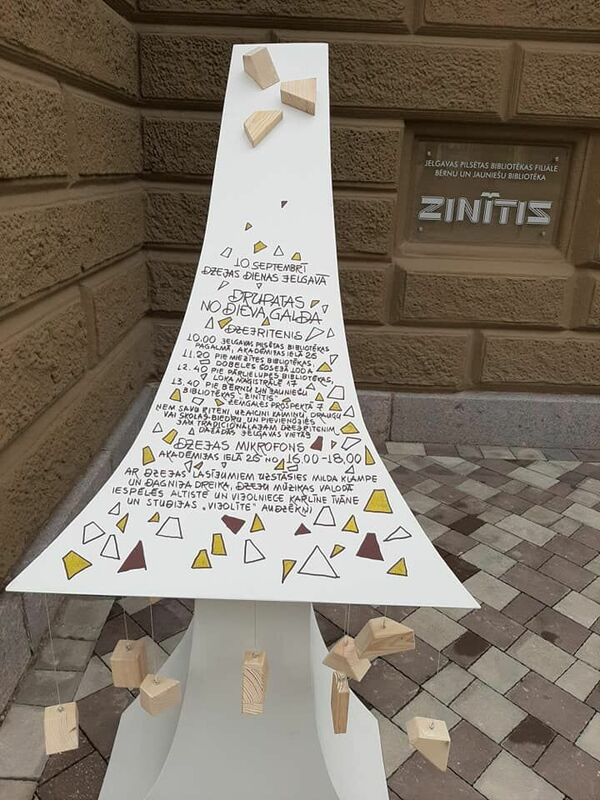 10 SEPTEMBRĪ
DZEJAS DIENAS JELGAVĀ
DRUPATAS
NO DIEVA GALDA
DZEJRITENIS
10.00 JELGAVAS PILSĒTAS BIBLIOTĒKAS
PAGALMĀ, AKADĒMIJAS IELĀ 26
11.20 PIE MIEZĪTES BIBLIOTĒKAS,
DOBELES ŠOSEJĀ 100A
12.40 PIE PĀRLIELUPES BIBLIOTĒKAS,
LOKA MAĢISTRĀLĒ 17
13.40 PIE BĒRNU UN JAUNIEŠU
BIBLIOTĒKAS "ZINĪTIS"
ZEMGALES PROSPEKTĀ 7
ŅEM SAVU RITENI, UZAICINI KAIMIŅU, DRAUGU
VAI SKOLASBIEDRU UN PIEVIENOJIES
JAU TRADICIONĀLAJAM DZEJRITENIM
DAŽĀDĀS JELGAVAS VIETĀS
DZEJAS MIKROFONS
AKADĒMIJAS IELĀ 26 NO 16.00-18.00
AR DZEJAS LASĪJUMIEM UZSTĀSIES MILDA KLAMPE
UN DAGNIJA DREIKA, DZEJU MŪZIKAS VALODĀ
IESPĒLĒS ALTISTE UN VIJOLNIECE KARLĪNE ĪVĀNE
UN STUDIJAS "VIJOLĪTE" AUDZĒKŅI
JELGAVAS PILSĒTAS BIBLIOTĒKAS FILIĀLE
BĒRNU UN JAUNIEŠU BIBLIOTĒKA
ZINĪTIS